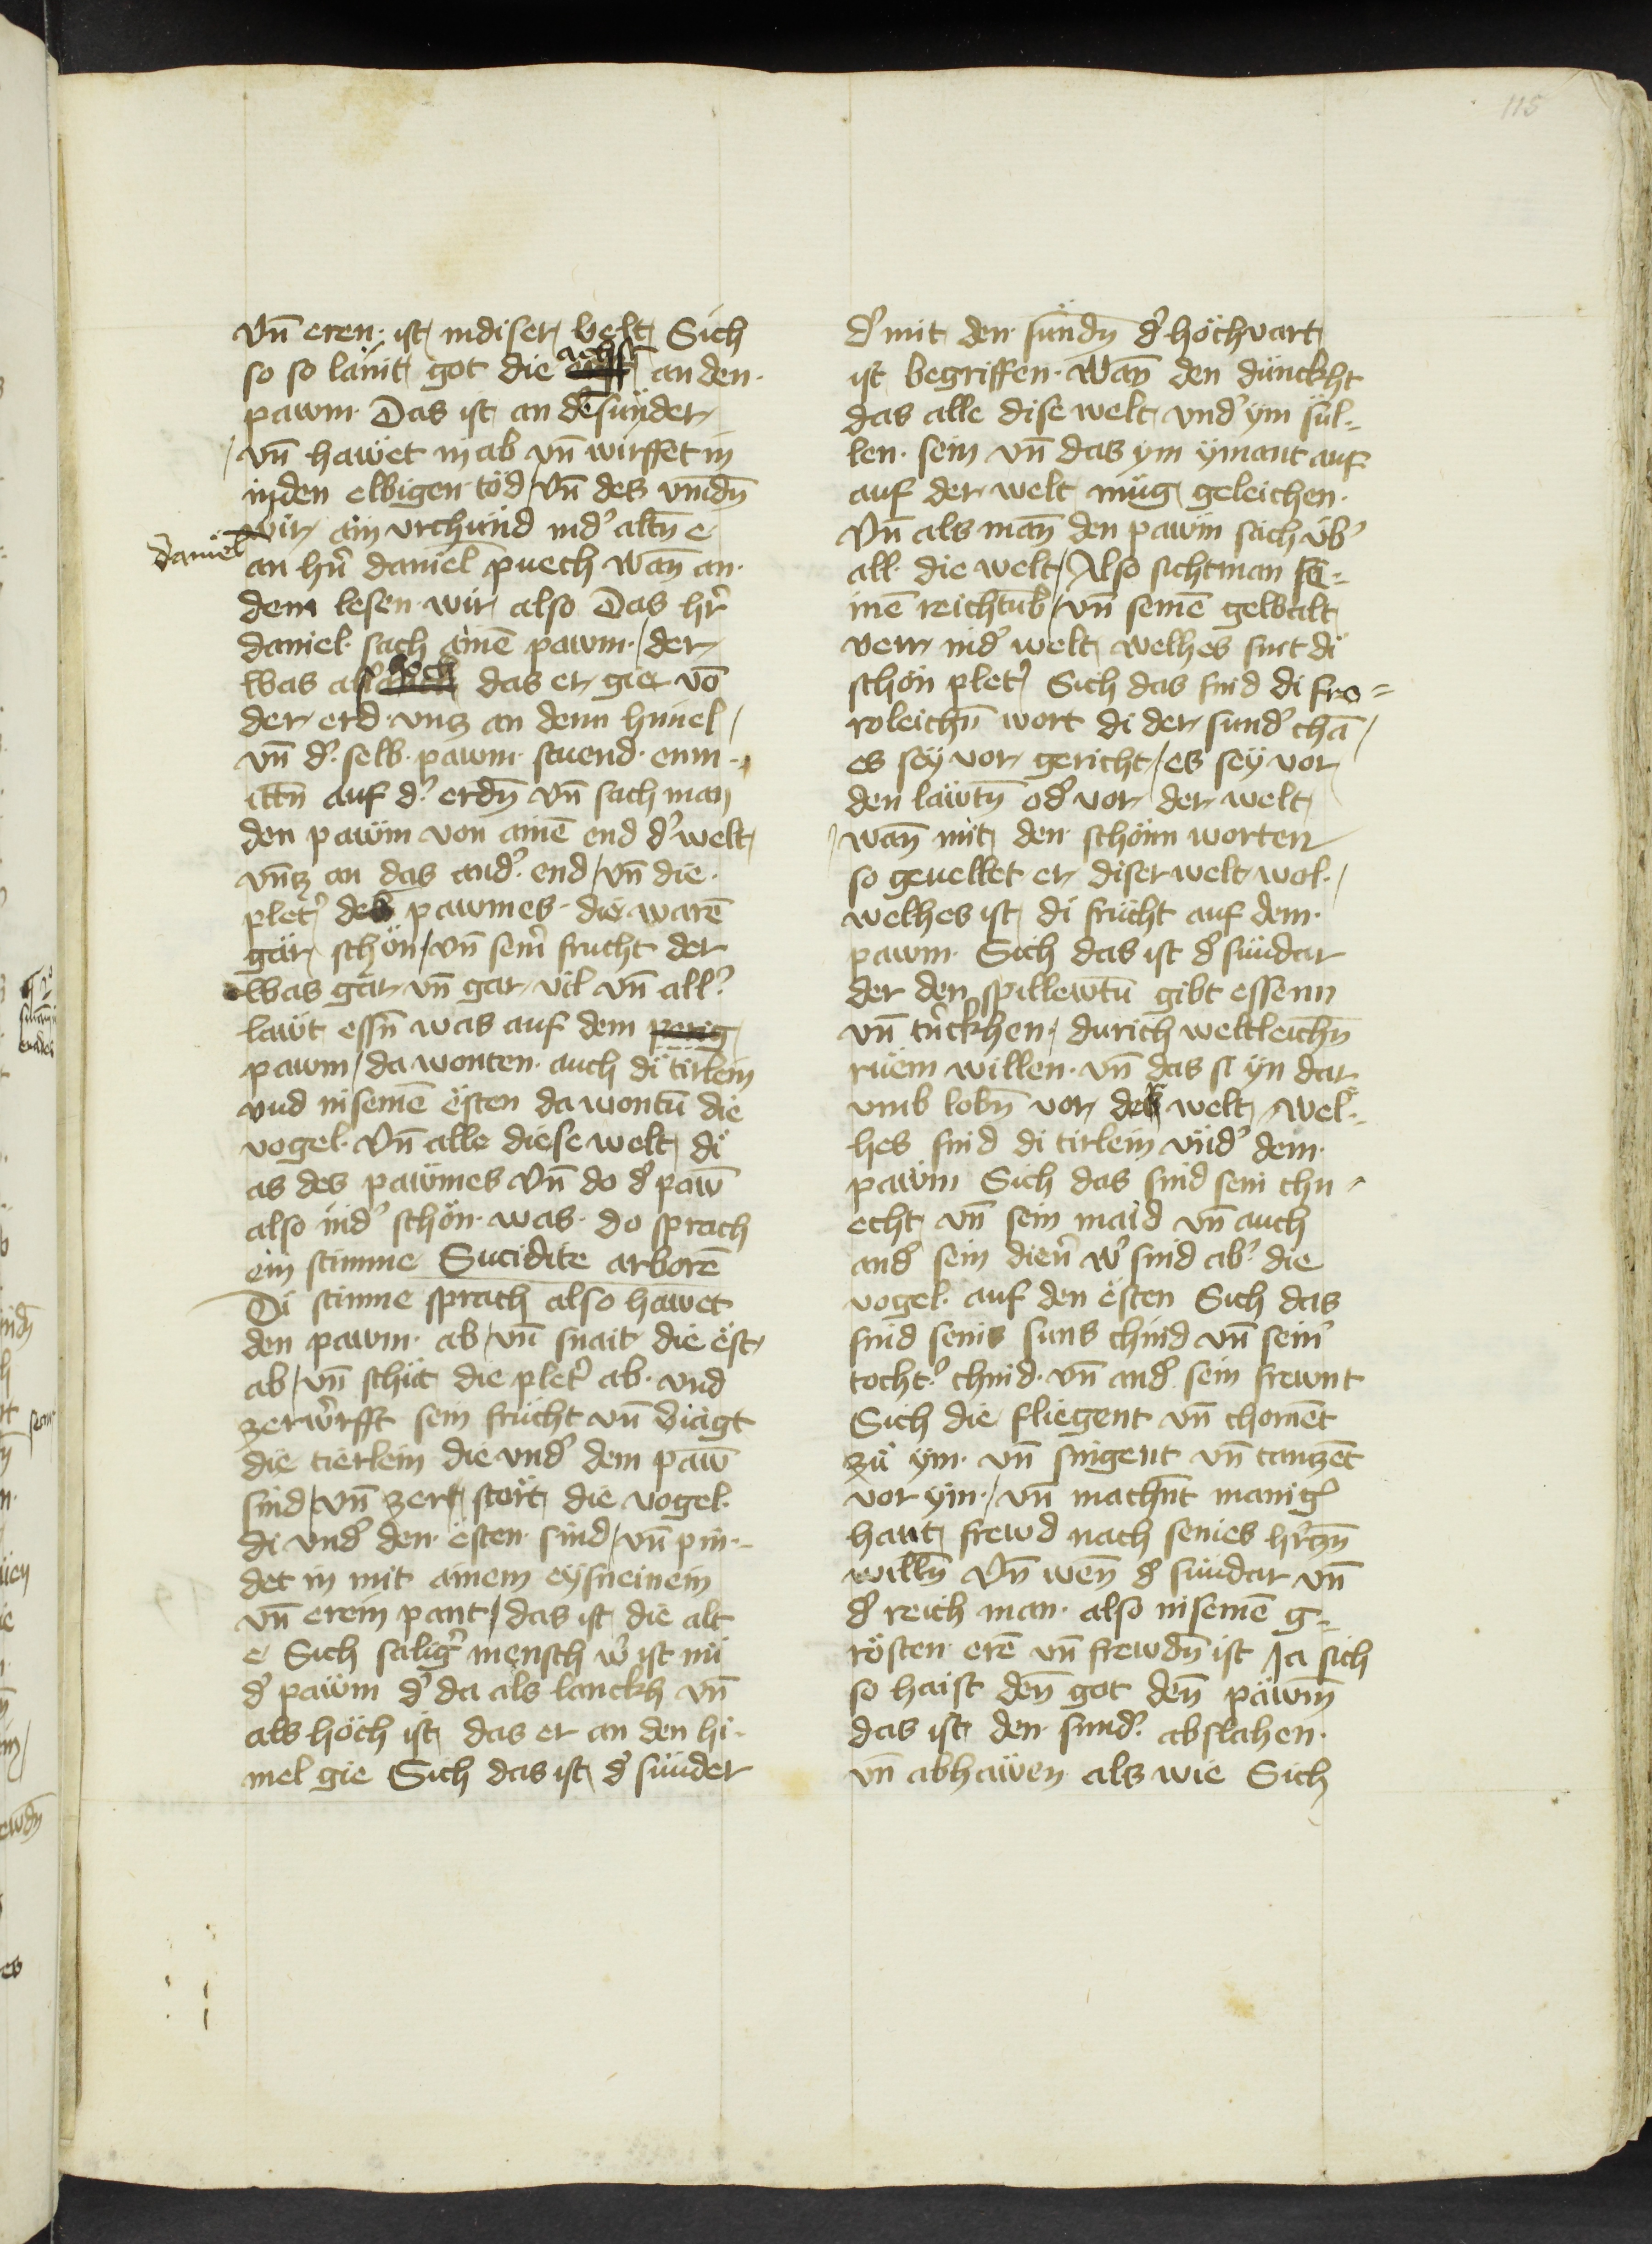 115
vn̄ eren· ist indiser welt Sich
so so län̈it got die achst an den·
pawm· Das ist an dē sunder
vn̄ hawet in ab vn̄ wirffet in
inden ewigen töd / Vn̄ des vindn̄
wir ain vrchünd ind' altn̄ e
daniel
an hr̄n daniel puech wan̄ an·
dem lesen wir also Das hr̄
daniel· sach ainē pawm· / der
was als hoch das er gie vō
der erd vnz an denn himel /
vn̄ d'selb· pawm· stuend· enm-
ittn̄ auf d' erdn̄ vn̄ sach man
den pawm von ainē end d' welt
vn̄tz an das and' end / vn̄ die·
plet' des pawmes· die warē
gar schön / vn̄ sein frucht der
was gar vn̄ gar vil vn̄ all'
lawt essn̄ was auf dem perig
pawm / da wonten· auch di tirlein
vnd in seinē esten da wontū die
vogel· Vn̄ alle diese welt di
as des pawmes Vn̄ do d' paw̄
also ind' schön· was· do sprach
ein stimme Sucidite arborē
Di stimme sprach also hawet
den pawm· ab / vn̄ snait die est
ab / vn̄ schüt die plet' ab· vnd
zerw'rfft sein frücht vn̄ viagt
die tierlein die vnd' dem paw̄
sind / vn̄ zerstort die vogel·
di vnd' den· esten· sind / vn̄ pin-
det in mit ainem eysneinem
vn̄ erein pant / das ist die alt
e Sich salig' mensch w' ist nü
d' pawm d' da als lanckh vn̄
als höch ist das er an den hi-
mel gie Sich das ist d' sünder
d' mit den· sündn̄ d' höchvart
ist begriffen· Wan̄ den dünckht
das alle dise welt vnd' ym sül-
len· sein vn̄ das ym ymant auf
auf der welt müg geleichen·
Vn̄ als man̄ den pawm sach üb'
all· die welt / Also sicht man sei-
inē reichtub / vn̄ seinē gewalt
verr ind' welt welhes sint di
schön plet' Sich das sind di fro=
roleichn̄ wort di der sund' chā /
es sey vor gericht / es sey vor
den läwtn̄ od' vor der welt
wan̄ mit den· schönn worten
so geuellet er diser welt wol· /
welhes ist di frücht auf dem·
pawm· Sich das ist d' sündar
der den spillewtū gibt essenn
vn̄ tn̄ckhen· durich weltleichn̄
ruem willen· vn̄ das si yn dar
vmb lobn̄ vor der welt / wel-
hes sind di tirlein vnd' dem·
pawm Sich das sind sein chn-
echt vn̄ sein maid vn̄ auch
and' sein dien' w' sind ab' die
vogel· auf den esten Sich das
sind seins suns chind vn̄ sein'
tocht' chind· vn̄ and' sein frewnt
Sich die fliegent vn̄ chomēt
zu ym· vn̄ singent vn̄ tanzēt
vor ym· / vn̄ machn̄t manig'
hant frewd nach seines hr̄tzn̄
willn̄ Vn̄ wen̄ d' sundar vn̄
d' reich man· also in seinē g-
rösten· erē vn̄ frewdn̄ ist Ja sich
so haist den̄ got den̄ pawm̄
das ist den sund' abslahen·
vn̄ abhawen als wie Sich